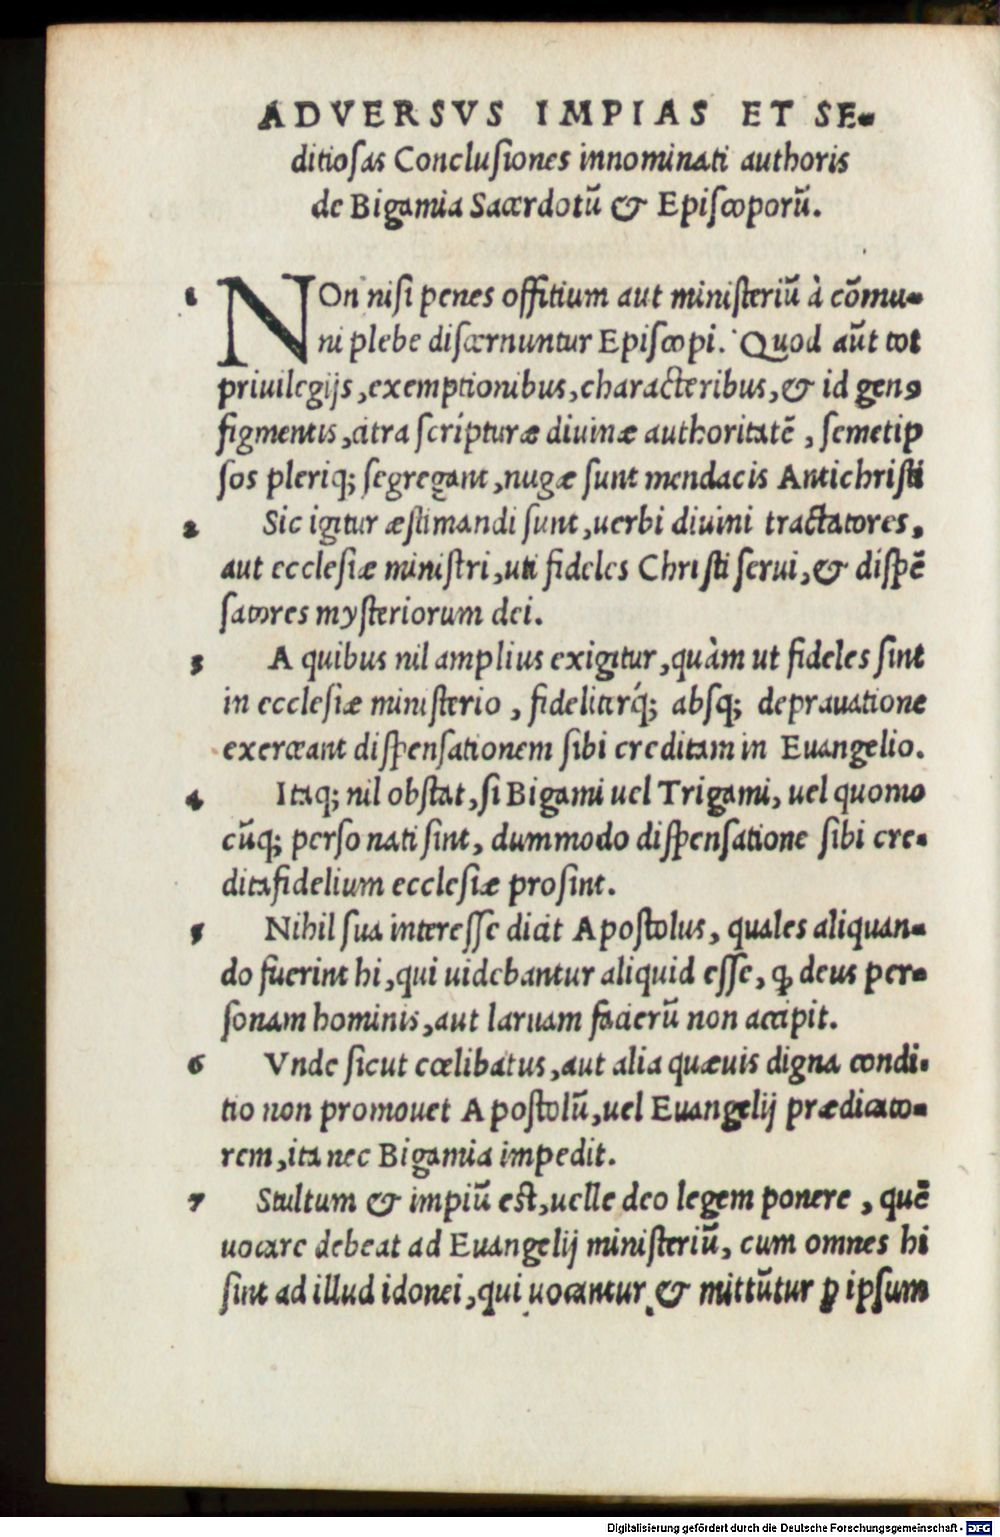 ADVERSVS IMPIAS ET SE-
ditiosas Conclusiones innominati authoris
de Bigamia Sacerdotũ & Episcoporũ.
1 NOn nisi penes offitium aut ministeriũ à cõmu-
ni plebe discernuntur Episcopi. Quod aũt tot
priuilegijs, exemptionibus, characteribus, & id genꝰ
figmentis, citra scripturæ diuinæ authoritatẽ, semetip
sos pleriq; segregant, nugæ sunt mendacis Antichristi
2 Sic igitur æstimandi sunt, uerbi diuini tractatores,
aut ecclesiæ ministri, uti fideles Christi serui, & dispẽ
satores mysteriorum dei.
3 A quibus nil amplius exigitur, quàm ut fideles sint
in ecclesiæ ministerio, fideliterq́; absq; deprauatione
exerceant dispensationem sibi creditam in Euangelio.
4 Itaq; nil obstat, si Bigami uel Trigami, uel quomo
cũq; personati sint, dummodo dispensatione sibi cre-
dita fidelium ecclesiæ prosint.
5 Nihil sua interesse dicit Apostolus, quales aliquan-
do fuerint hi, qui uidebantur aliquid esse, ꝙ deus per-
sonam hominis, aut laruam facierũ non accipit.
6 Vnde sicut cœlibatus, aut alia quæuis digna condi-
tio non promouet Apostolũ, uel Euangelij prædicato-
rem, ita nec Bigamia impedit.
7 Stultum & impiũ est, uelle deo legem ponere, quẽ
uocare debeat ad Euangelij ministeriũ, cum omnes hi
sint ad illud idonei, qui uocantur & mittũtur ꝑ ipsum
Digitalisierung gefördert durch die Deutsche Forschungsgemeinschaft - DFG